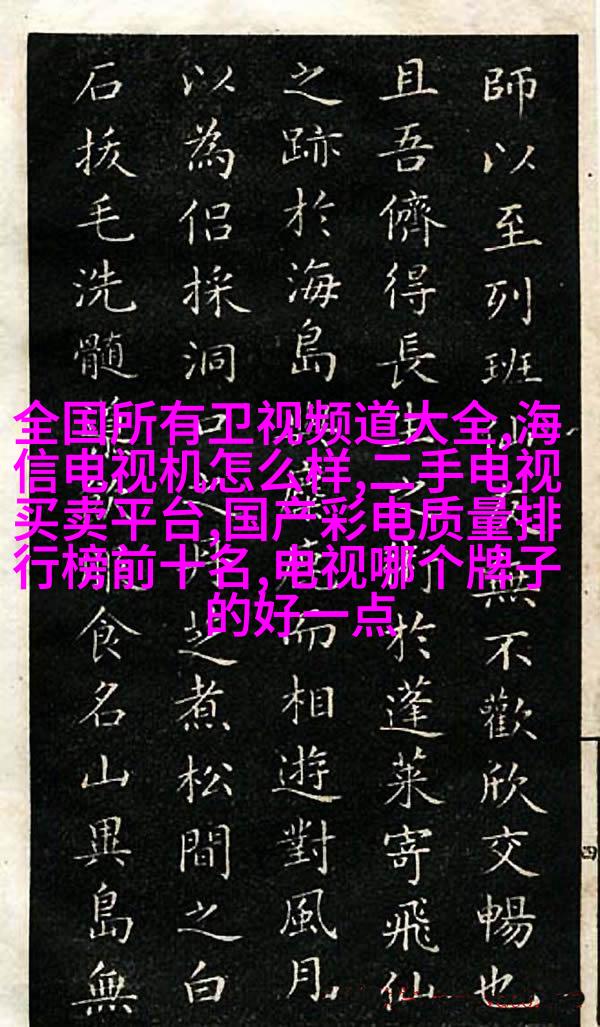 全国所有卫视频道大全,海
信电视机怎么样,二手电视
买卖平台,国产彩电质量排
行榜前十名,电视哪个牌子
的好一点
師以至列班無不歡欣交暢也
且吾儕得長生之於蓬萊寄飛仙
之跡於海島而相遊對風月
以為侶採洞口芝煮松間之白
石拔毛洗髓食名山異島無
四